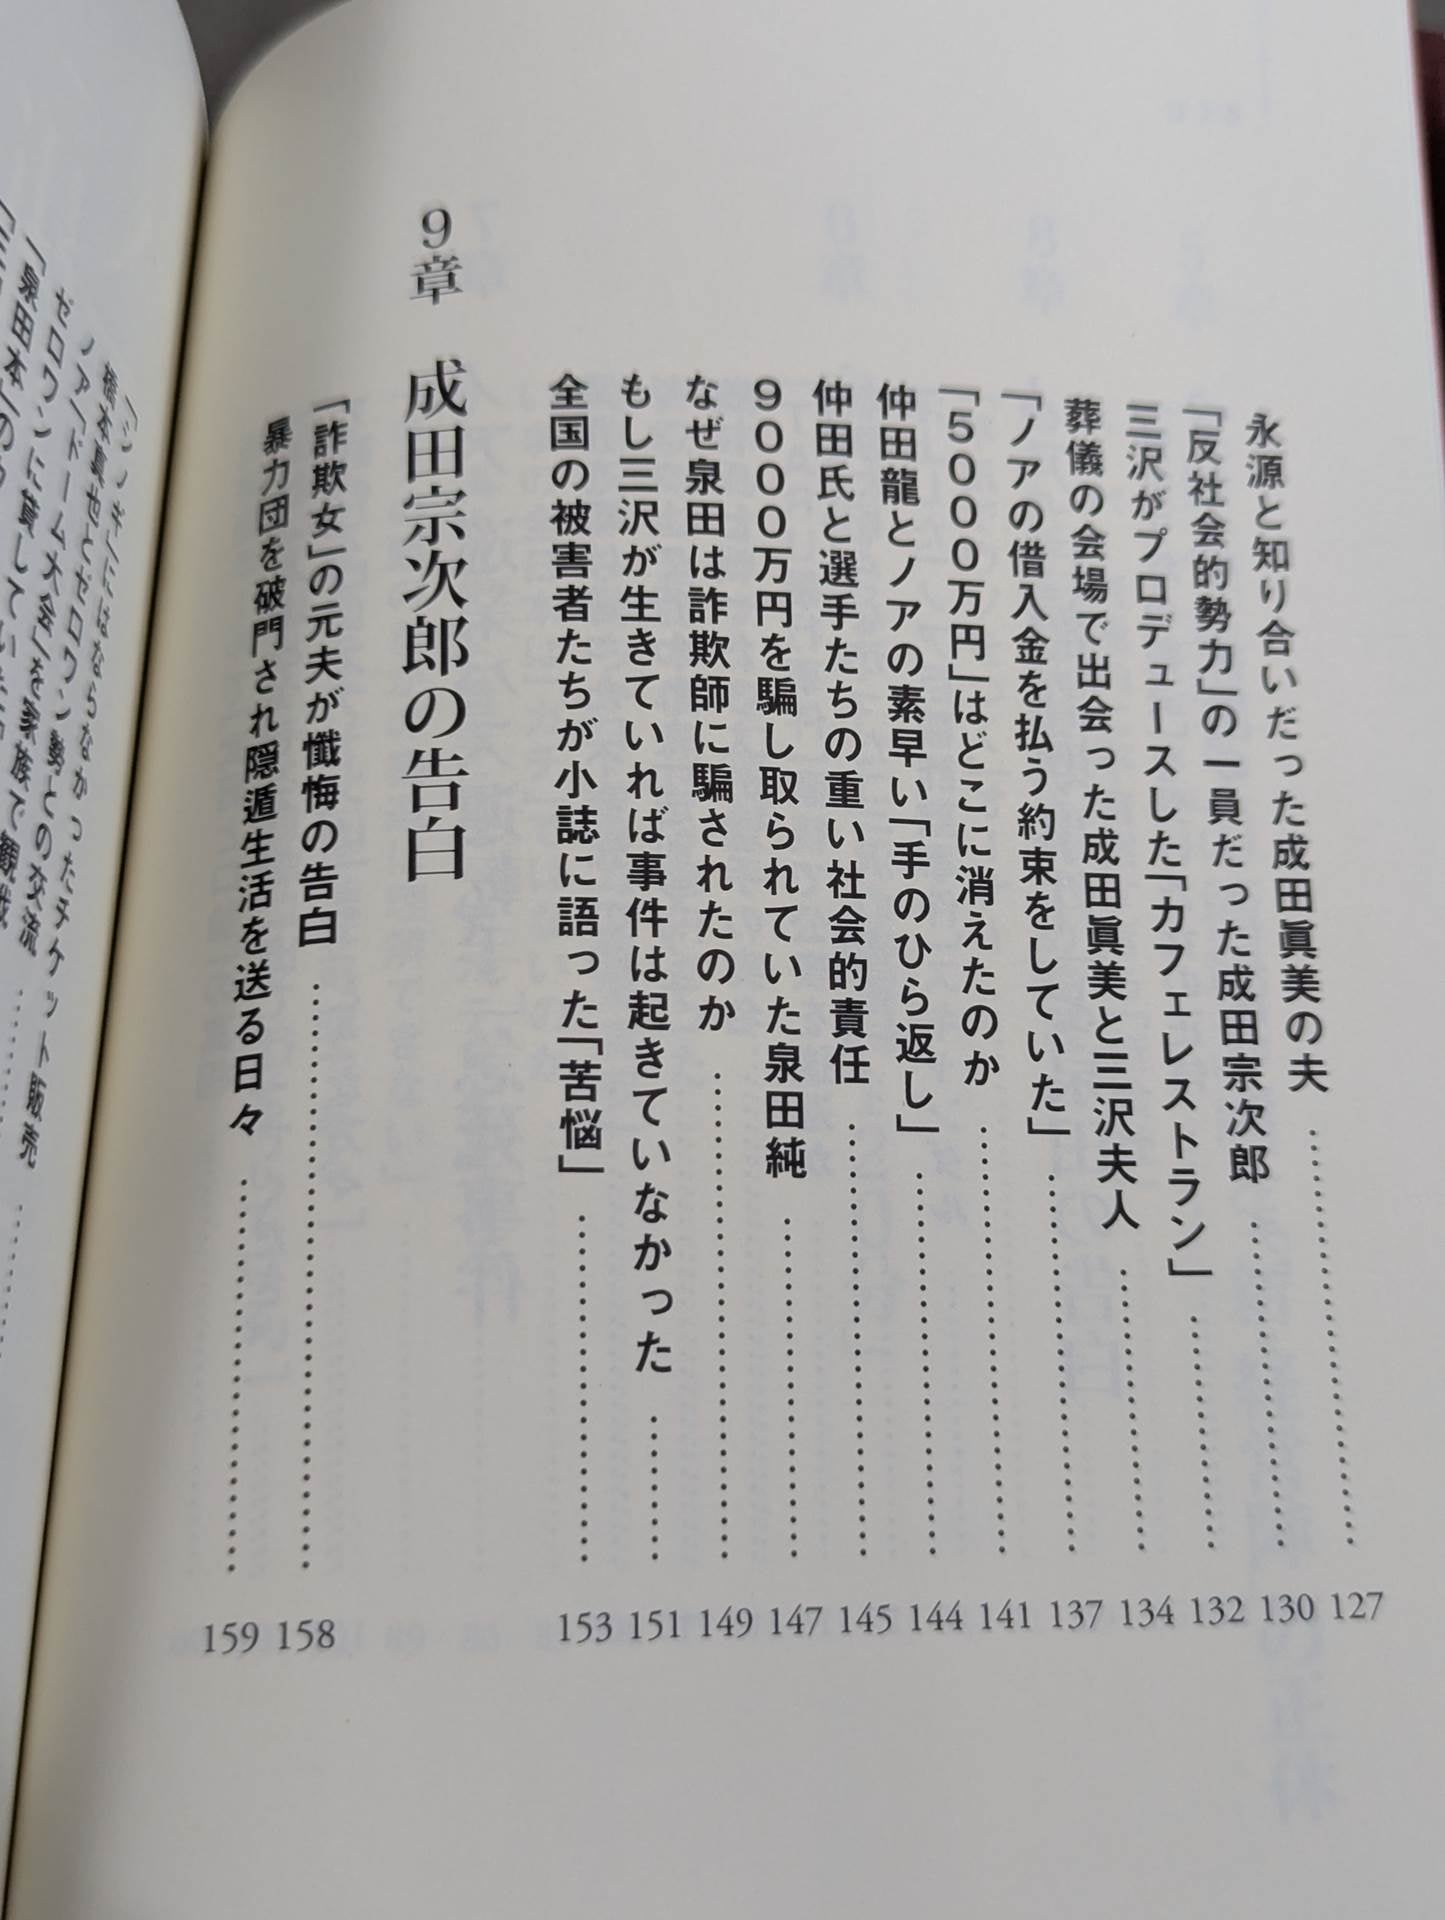 永源と知り合いだった成田眞美の夫 127
「反社会的勢力」の一員だった成田宗次郎 130
三沢がプロデュースした「カフェレストラン」 132
葬儀の会場で出会った成田眞美と三沢夫人 134
「ノアの借入金を払う約束をしていた」 137
「5000万円」はどこに消えたのか 141
仲田龍とノアの素早い「手のひら返し」 144
仲田氏と選手たちの重い社会的責任 145
9000万円を騙し取られていた泉田純 147
なぜ泉田は詐欺師に騙されたのか 149
もし三沢が生きていれば事件は起きていなかった 151
全国の被害者たちが小誌に語った「苦悩」 153
9章 成田宗次郎の告白
「詐欺女」の元夫が懺悔の告白 158
暴力団を破門され隠遁生活を送る日々 159
にはならなかったチケット販売
橋本真也とゼロワン勢との交流
ノア「ドーム大会」を家族で観戦
ゼロワンに貸していた
「泉田本」の